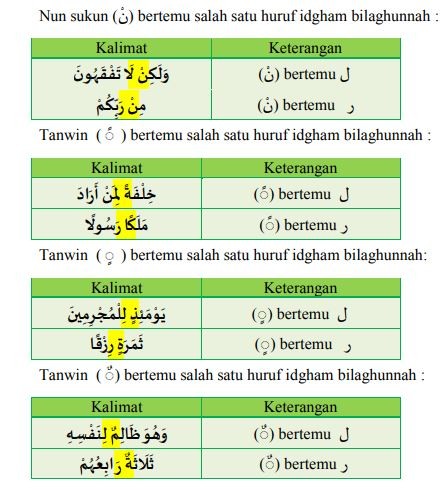 Nun sukun (نْ) bertemu salah satu huruf idgham bilaghunnah :
Kalimat Keterangan
وَلَكِنْ لَا تَفْقَهُونَ (نْ) bertemu ل
مِنْ رَبِّكُمْ (نْ) bertemu ر
Tanwin ( ً ) bertemu salah satu huruf idgham bilaghunnah :
Kalimat Keterangan
خِلْفَةً لِمَنْ أَرَادَ (ً) bertemu ل
مَلَكًا رَسُولًا (ً) bertemu ر
Tanwin ( ٍ ) bertemu salah satu huruf idgham bilaghunnah:
Kalimat Keterangan
يَوْمَئِذٍ لِلْمُجْرِمِينَ (ٍ) bertemu ل
ثَمَرَةٍ رِزْقًا (ٍ) bertemu ر
Tanwin ( ٌ ) bertemu salah satu huruf idgham bilaghunnah :
Kalimat Keterangan
وَهُوَ ظَالِمٌ لِنَفْسِهِ (ٌ) bertemu ل
ثَلَاثَةٌ رَابِعُهُمْ (ٌ) bertemu ر